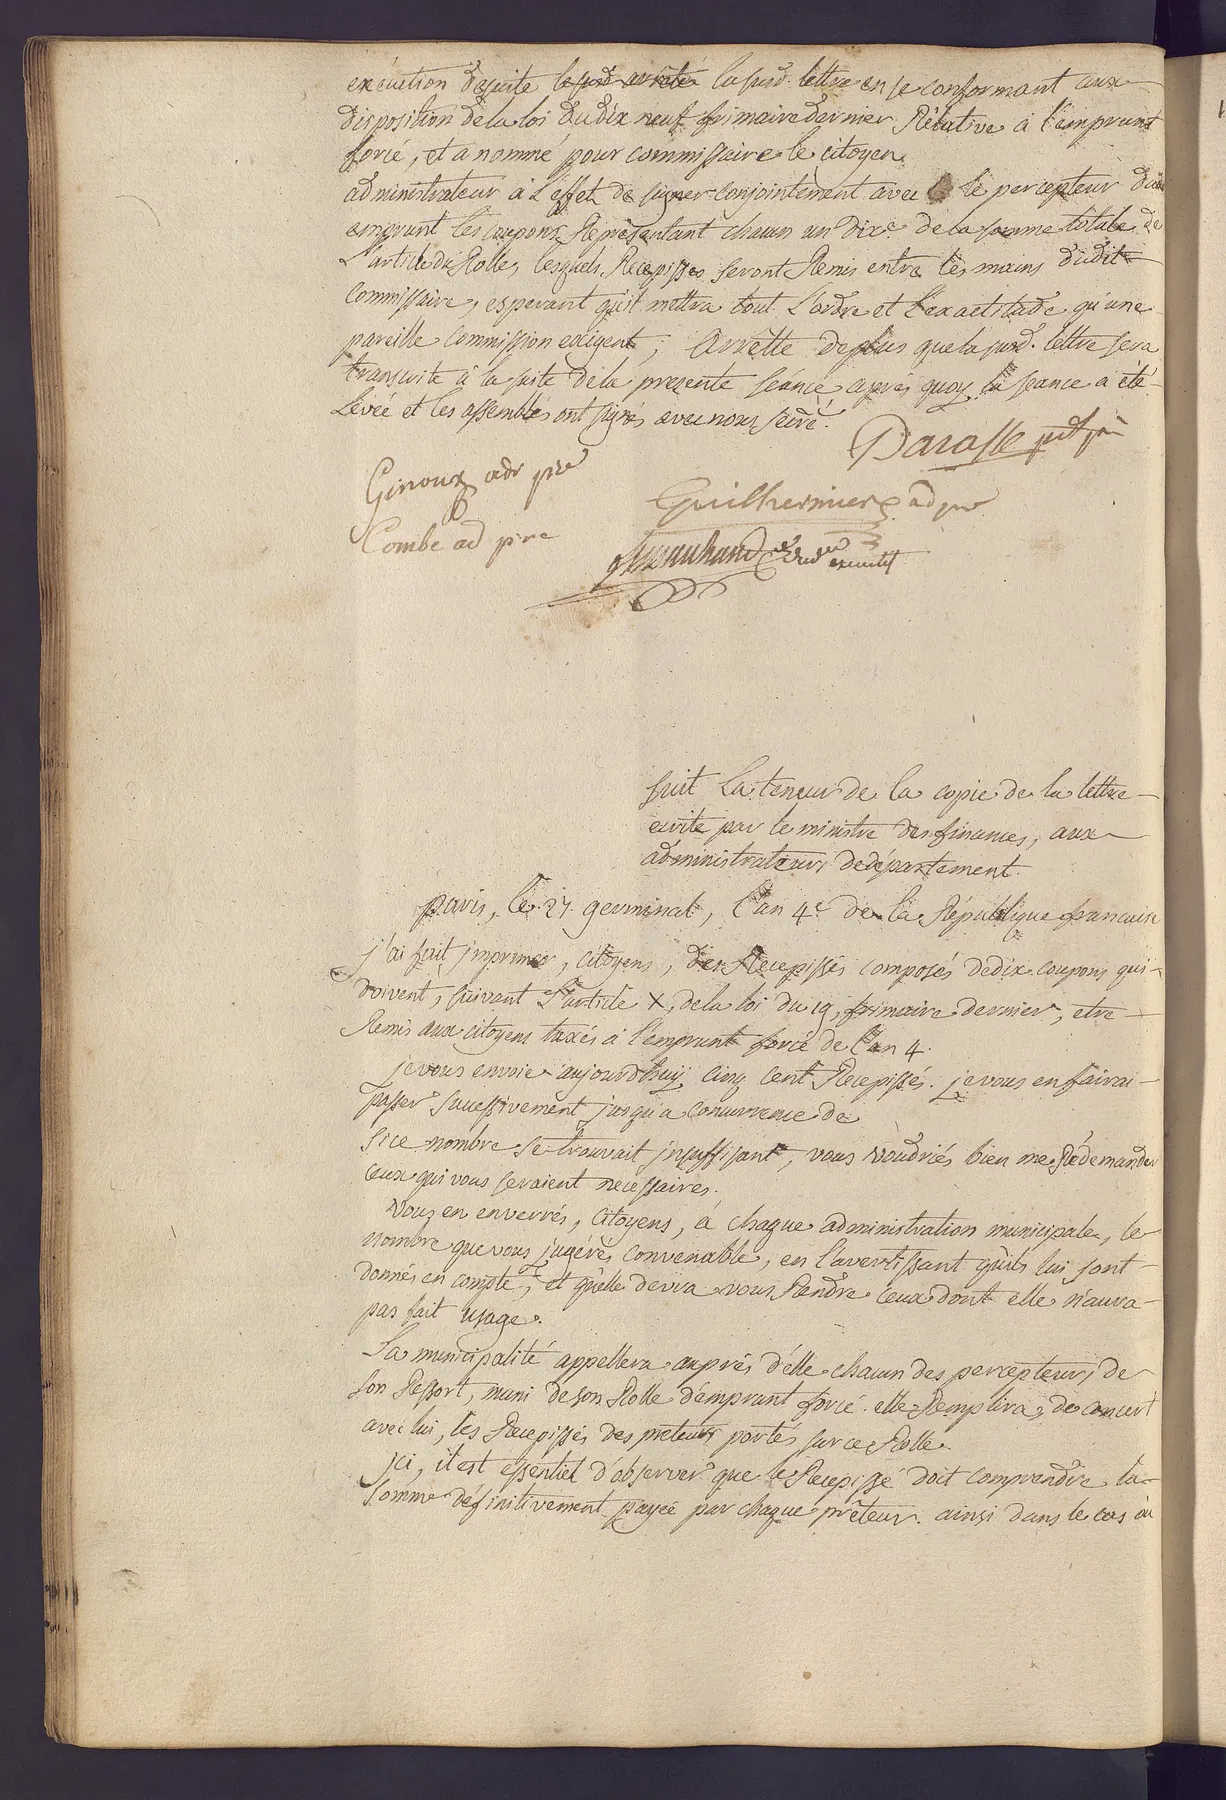 execution desuite la susd. lettre en se conformant aux
disposition dela loi du dix neuf frimaire dernier Rélative à l'emprunt
forcé, et a nommé pour commissaire le citoyen
administrateur à l'effet de signer conjointement avec le percepteur dud.
emprunt les coupons Représentant chacun un dixe. dela somme totale de
L'article du Rolle, lesquels Recepisses seront Remis entre les mains dudit
commissaire, esperant qu'il mettra tout L'ordre et l'exactitude qu'une
pareille commission exigent, Arrette deplus que la susd. lettre sera
transcrite à la suite de la presente séance après quoy la seance a été
Levée et les assemblés ont signés avec nous secre.
Darasse
Giroux adr pre
Guilhermier ad pre
Combe ad pre
suit La teneur de la copie de la lettre
ecrite par le ministre des finances, aux
administrateurs dedépartement.
paris, le 27 germinal, l'an 4e de la République francaise
j'ai fait jmprimer, citoyens, des Recepissés composés dedix coupons qui
doivent, suivant l'article X, dela loi du 19, frimaire dernier, etre
Remis aux citoyens taxés à l'emprunt forcé de l'an 4.
je vous envoie aujourd'huy cinq cent Recepissés. je vous en fairai
passer successivement jusqu'a concurrence de
si ce nombre se trouvait jnsuffisant, vous voudriés bien me Rédemander
ceux qui vous seraient necessaires.
Vous en enverrés, citoyens, à chaque administration municipale, le
nombre que vous jugérés convenable, en l'avertissant qu'ils lui sont
donnés en compte, et qu'elle devra vous Rendre ceux dont elle n'aura
pas fait usage.
La municipalité appellera auprès d'elle chacun des percepteurs de
son Ressort, muni de son Rolle d'emprunt forcé. elle Remplira, de concert
avec lui, les Recepissés des preteurs portés sur ce Rolle.
jci, il est essentiel d'observer que le Recepissé doit comprendre la
somme définitivement payée par chaque prêteur. ainsi dans le cas ou